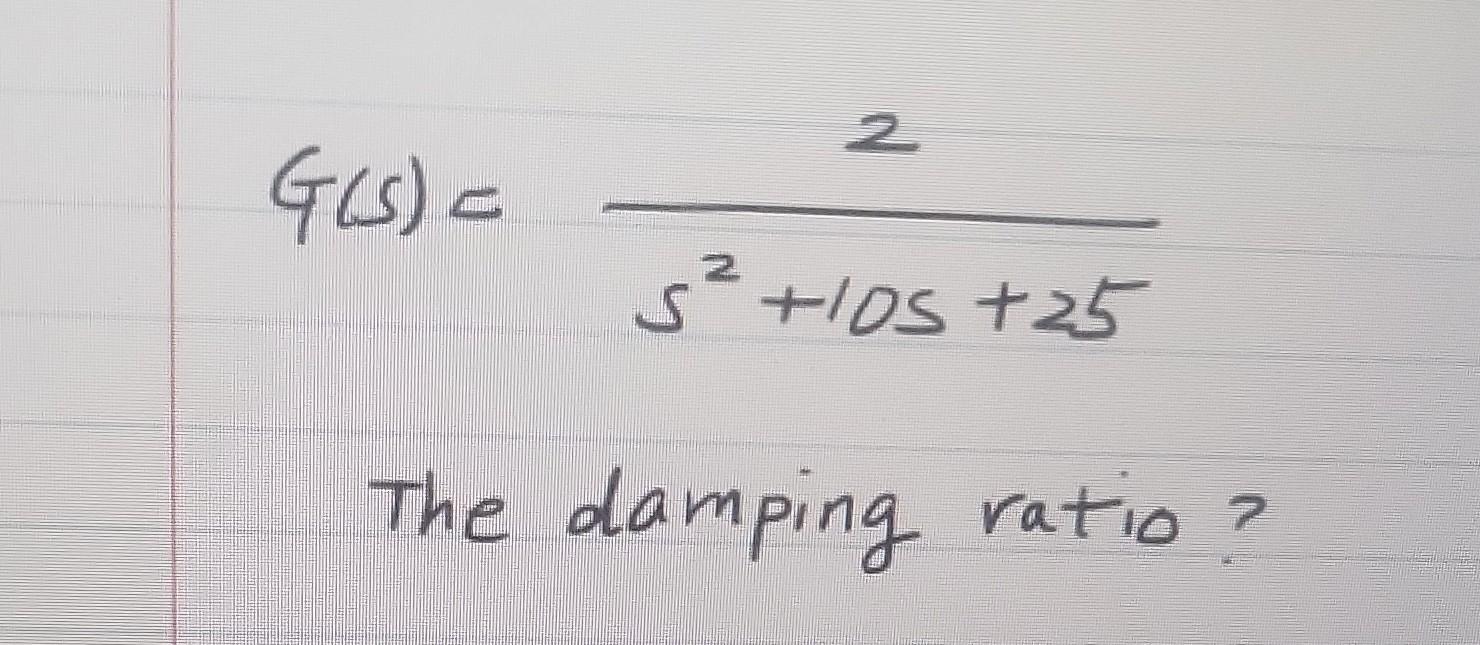 G(s) = 2 / s² + 10s + 25
The damping ratio ?